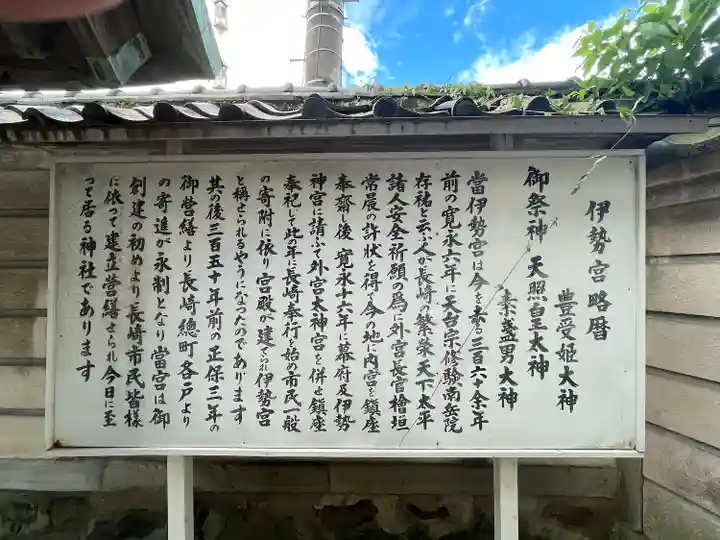 伊勢宮略暦
豊受姫大神
御祭神 天照皇大神
素盞男大神
當伊勢宮は今を去る三百六十余年
前の寛永六年に天台宗修験南岳院
存祐と云ふ人が長崎の繁榮天下太平
諸人安全祈願の爲に外宮長官檜垣
常晨の許状を得て今の地に内宮を鎮座
奉齋し後寛永十六年に幕府及伊勢
神宮に請ふて外宮大神宮を併せ鎮座
奉祀して此の年長崎奉行を始め市民一般
の寄附に依り宮殿が建てられ伊勢宮
と稱せられるやうになつたのであります
其の後三百五十年前の正保三年の
御營繕より長崎總町各戸より
の寄進が永制となり當宮は御
創建の初めより長崎市民皆様
に依って建立營繕せられ今日に至
って居る神社であります